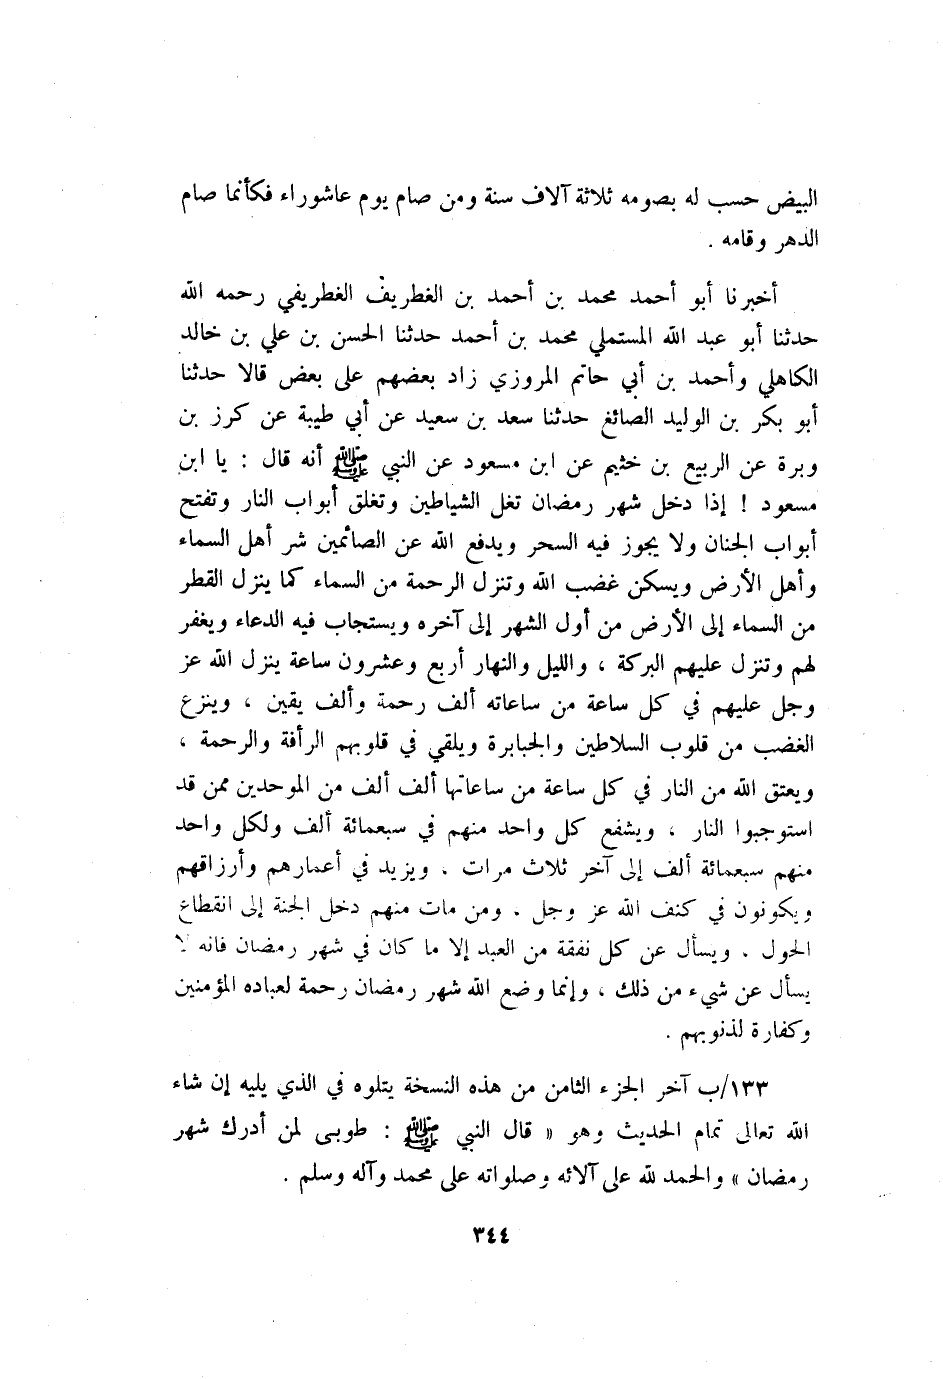 البيض حسب له بصومه ثلاثة آلاف سنة ومن صام يوم عاشوراء فكأنما صام
الدهر وقامه .
أخبرنا أبو أحمد محمد بن أحمد بن الغطريف الغطريفي رحمه الله
حدثنا أبو عبد الله المستملي محمد بن أحمد حدثنا الحسن بن علي بن خالد
الكاهلي وأحمد بن أبي حاتم المروزي زاد بعضهم على بعض قالا حدثنا
أبو بكر بن الوليد الصائغ حدثنا سعد بن سعيد عن أبي طيبة عن كرز بن
وبرة عن الربيع بن خثيم عن ابن مسعود عن النبي ﷺ أنه قال : يا ابن
مسعود ! إذا دخل شهر رمضان تغل الشياطين وتغلق أبواب النار وتفتح
أبواب الجنان ولا يجوز فيه السحر ويدفع الله عن الصائمين شر أهل السماء
وأهل الأرض ويسكن غضب الله وتنزل الرحمة من السماء كما ينزل القطر
من السماء إلى الأرض من أول الشهر إلى آخره ويستجاب فيه الدعاء ويغفر
لهم وتنزل عليهم البركة ، والليل والنهار أربع وعشرون ساعة ينزل الله عز
وجل عليهم في كل ساعة من ساعاته ألف رحمة وألف يقين ، وينزع
الغضب من قلوب السلاطين والجبابرة ويلقي في قلوبهم الرأفة والرحمة ،
ويعتق الله من النار في كل ساعة من ساعاتها ألف ألف من الموحدين ممن قد
استوجبوا النار ، ويشفع كل واحد منهم في سبعمائة ألف ولكل واحد
منهم سبعمائة ألف إلى آخر ثلاث مرات . ويزيد في أعمارهم وأرزاقهم
ويكونون في كنف الله عز وجل . ومن مات منهم دخل الجنة إلى انقطاع
الحول . ويسأل عن كل نفقة من العبد إلا ما كان في شهر رمضان فانه لا
يسأل عن شيء من ذلك ، وإنما وضع الله شهر رمضان رحمة لعباده المؤمنين
وكفارة لذنوبهم .
١٣٣/ب آخر الجزء الثامن من هذه النسخة يتلوه في الذي يليه إن شاء
الله تعالى تمام الحديث وهو « قال النبي ﷺ : طوبى لمن أدرك شهر
رمضان » والحمد لله على آلائه وصلواته على محمد وآله وسلم .
٣٤٤